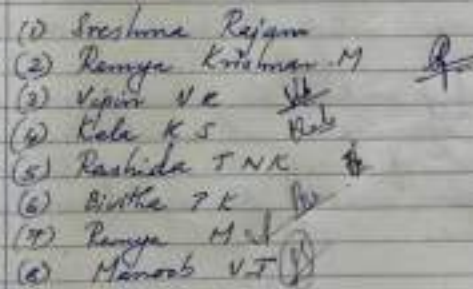 (1) Sreshma Rajan
(2) Remya Krishnan . M
(3) Vipin V K
(4) Kala K S
(5) Rashida T N K
(6) Bivitha P K
(7) Remya M
(8) Manoob V T